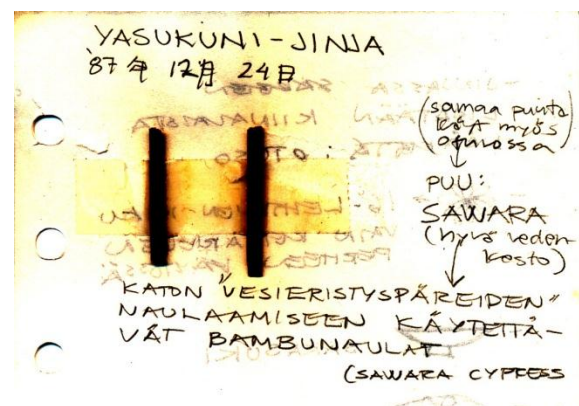 YASUKUNI-JINJA
'87年 12月 24日
(samaa puuta
käyt myös
ofurossa)
PUU:
SAWARA
(hyvä veden
kesto)
KATON "VESIERISTYSPÄREIDEN"
NAULAAMISEEN KÄYTETTÄ-
VÄT BAMBUNAULAT
(SAWARA CYPRESS